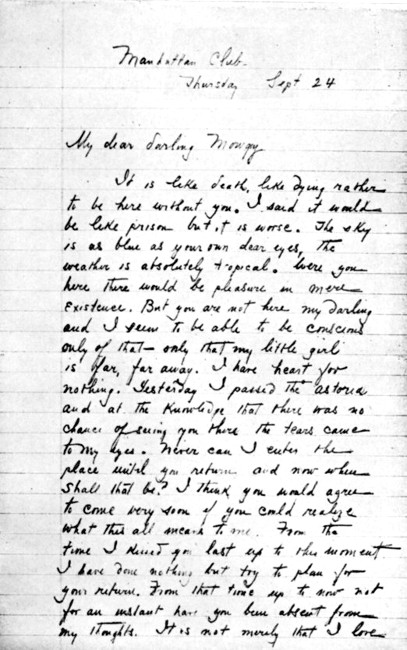 Manhattan Club.
Thursday Sept 24
My dear darling Mowgy
It is like death, like dying rather
to be here without you. I said it would
be like prison but it is worse. The sky
is as blue as your own dear eyes, the
weather is absolutely tropical. Were you
here there would be pleasure in mere
existence. But you are not here my darling
and I seem to be able to be conscious
only of that — only that my little girl
is far, far away. I have heart for
nothing. Yesterday I passed the Astoria
and at the knowledge that there was no
chance of seeing you there the tears came
to my eyes. Never can I enter the
place until you return and now when
shall that be? I think you would agree
to come very soon if you could realize
what this all means to me. From the
time I kissed you last up to this moment
I have done nothing but try to plan for
your return. From that time up to now not
for an instant have you been absent from
my thoughts. It is not merely that I love